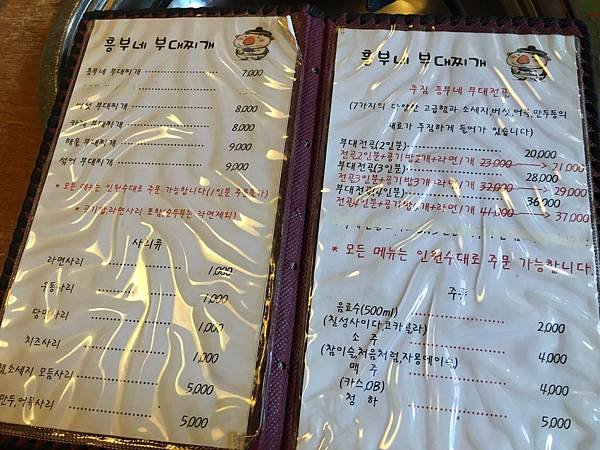 흥부네 부대찌개
흥부네 부대찌개 7,000
버섯 부대찌개 8,000
카레 부대찌개 8,000
해물 부대찌개 9,000
섞어 부대찌개 9,000
* 모든 메뉴는 인원수대로 주문 가능합니다(1인분 주문불가)
* 공기밥,라면사리 포함(순두부는 라면제외)
사리류
라면사리 1,000
우동사리 1,000
당면사리 1,000
치즈사리 1,000
햄,소세지 모듬사리 5,000
만두,어묵사리 5,000
흥부네 부대찌개
푸짐 흥부네 부대전골
(7가지의 다양한 고급햄과 소세지,버섯,어묵,만두등의
재료가 푸짐하게 들어가 있습니다)
부대전골(2인분) 20,000
전골2인분+공기밥2개+라면1개 23,000 → 21,000
부대전골(3인분) 28,000
전골3인분+공기밥3개+라면1개 32,000 → 29,000
부대전골(4인분) 36,000
전골4인분+공기밥4개+라면1개 41,000 → 37,000
* 모든 메뉴는 인원수대로 주문 가능합니다.
주류
음료수(500ml) 2,000
(칠성사이다,코카콜라)
소 주 4,000
(참이슬,처음처럼,자몽에이슬)
맥 주 4,000
(카스,OB)
청 하 5,000